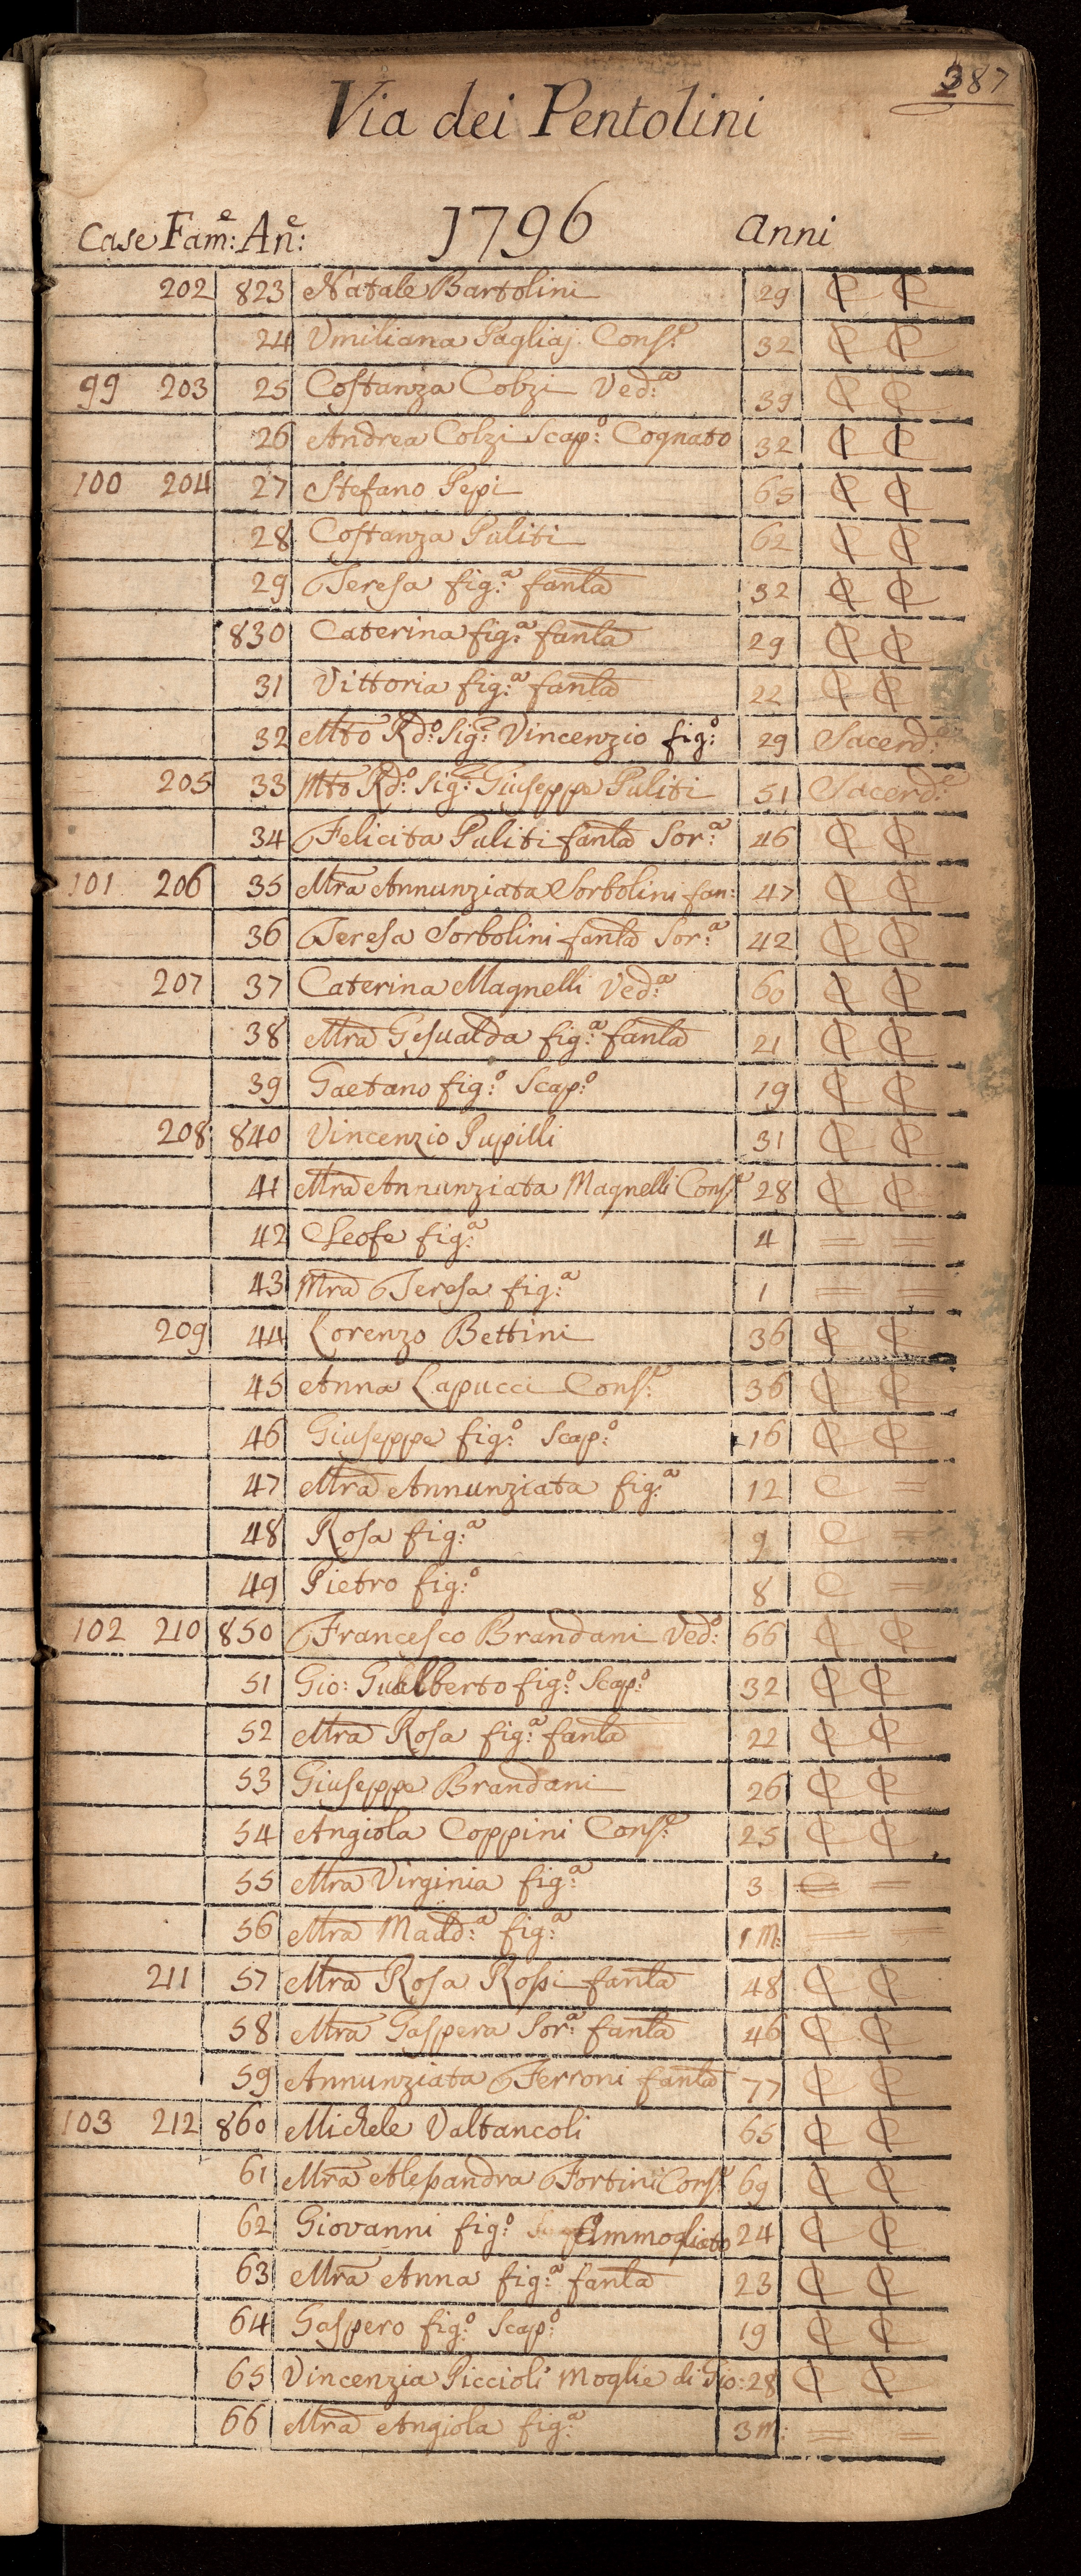 387
Via dei Pentolini
1796
Case Fam:e An:e anni
202 823 Natale Bartolini 29 C C
24 Vmiliana Pagliaj Cons:e 32 C C
99 203 25 Costanza Colzi Ved:a 39 C C
26 Andrea Colzi Scap:o Cognato 32 C C
100 204 27 Stefano Pepi 65 C C
28 Costanza Puliti 62 C C
29 Teresa fig:a fanla 32 C C
830 Caterina fig:a fanla 29 C C
31 Vittoria fig:a fanla 22 C C
32 Mto Rdo: Sig:e Vincenzio fig:o 29 Sacerd:e
205 33 Mto Rdo: Sig:e Giuseppe Puliti 51 Sacerd:e
34 Felicita Puliti fanla Sor:a 46 C C
101 206 35 Mra Annunziata Sorbolini fan: 47 C C
36 Teresa Sorbolini fanla Sor:a 42 C C
207 37 Caterina Magnelli Ved:a 60 C C
38 Mra Gesualda fig:a fanla 21 C C
39 Gaetano fig:o Scap:o 19 C C
208 840 Vincenzio Pupilli 31 C C
41 Mra Annunziata Magnelli Cons:e 28 C C
42 Cleofe fig:a 4 = =
43 Mra Teresa fig:a 1 = =
209 44 Lorenzo Bettini 36 C C
45 Anna Lapucci Cons:e 36 C C
46 Giuseppe fig:o Scap:o 16 C C
47 Mra Annunziata fig:a 12 C =
48 Rosa fig:a 9 C =
49 Pietro fig:o 8 C =
102 210 850 Francesco Brandani Ved:o 66 C C
51 Gio: Gualberto fig:o Scap:o 32 C C
52 Mra Rosa fig:a fanla 22 C C
53 Giuseppe Brandani 26 C C
54 Angiola Coppini Cons:e 25 C C
55 Mra Virginia fig:a 3 = =
56 Mra Madd:a fig:a 1 M: = =
211 57 Mra Rosa Rossi fanla 48 C C
58 Mra Gaspera Sor:a fanla 46 C C
59 Annunziata Ferroni fanla 77 C C
103 212 860 Michele Valtancoli 65 C C
61 Mra Alessandra Fortini Cons:e 69 C C
62 Giovanni fig:o Ammogliato 24 C C
63 Mra Anna fig:a fanla 23 C C
64 Gaspero fig:o Scap:o 19 C C
65 Vincenzia Piccioli Moglie di Gio: 28 C C
66 Mra Angiola fig:a 3 M: = =